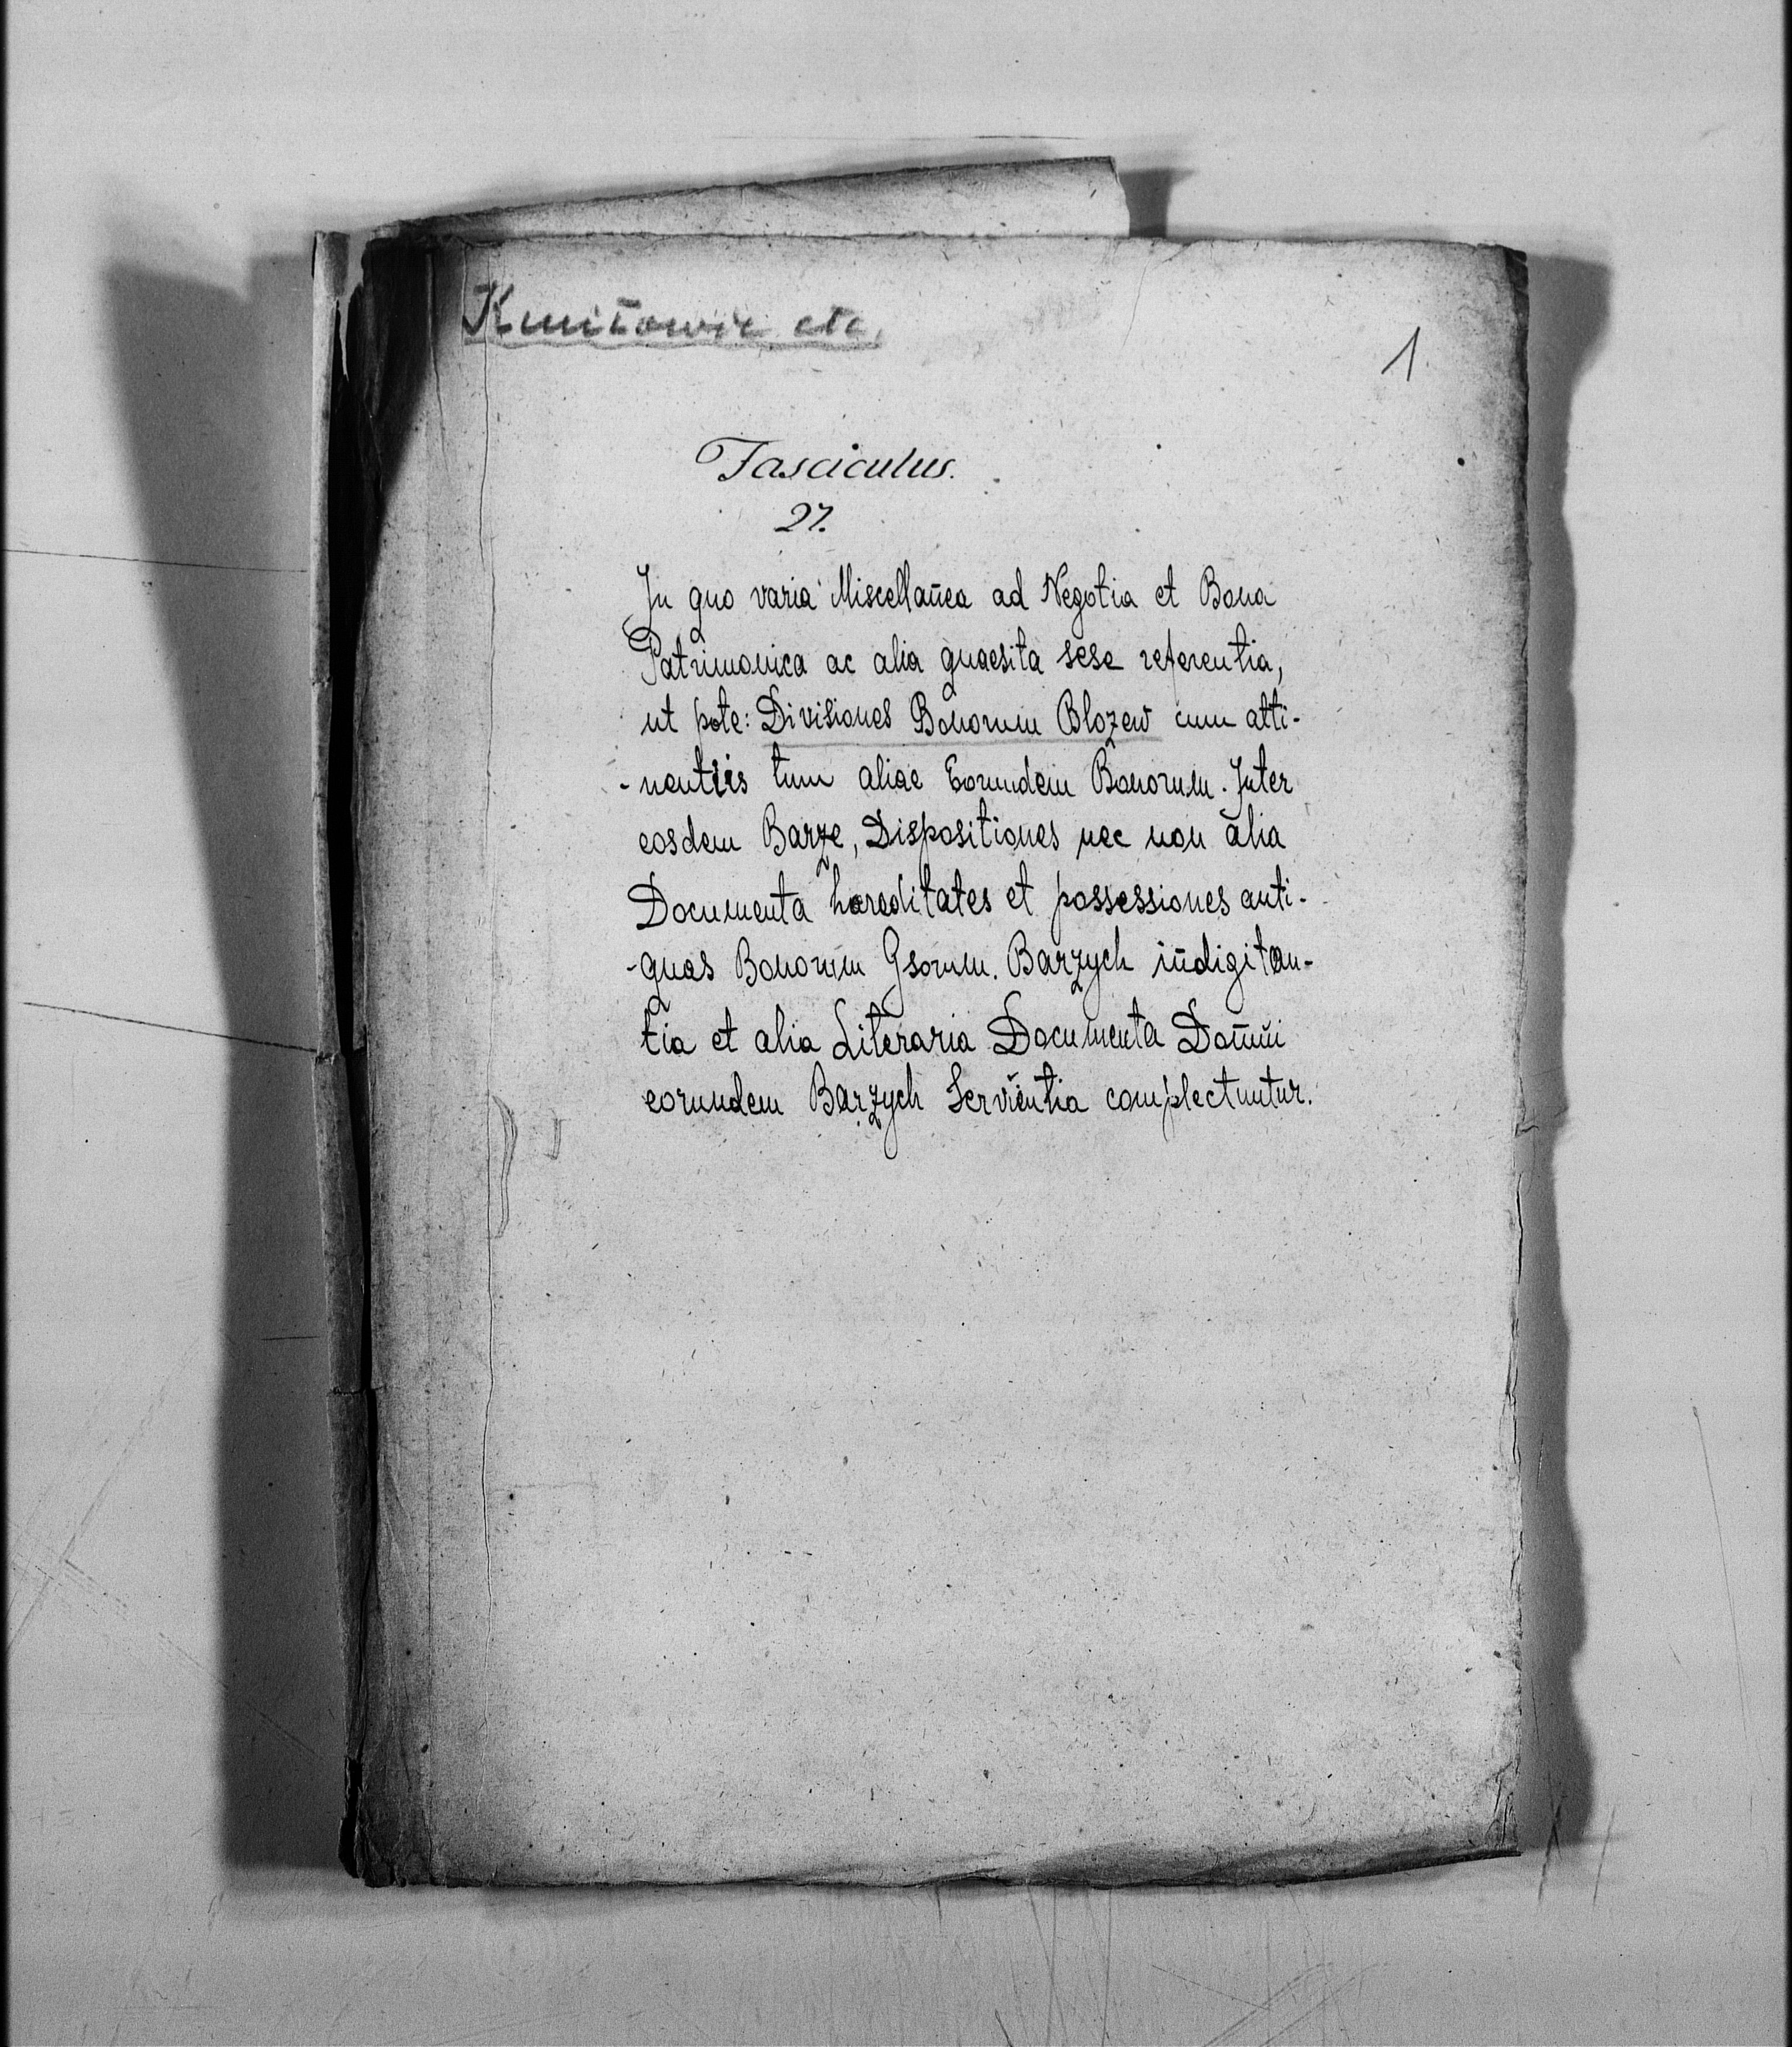 Kmitowie etc.
1
Fasciculus.
27.
In quo varia Miscellan̄ea ad Negotia et Bona
Patrimonica ac alia quaesita sese referentia,
ut pote: Divisiones Bonorum Blozew cum atti-
-nentiis tum aliae Eorundem Bonorum. Inter
eosdem Barze, Dispositiones nec non alia
Documenta haereditates et possessiones anti-
-quas Bonorum Gsorum. Barzych indigitan-
tia et alia Literaria Documenta Domui
eorundem Barzych Servientia complectuntur.